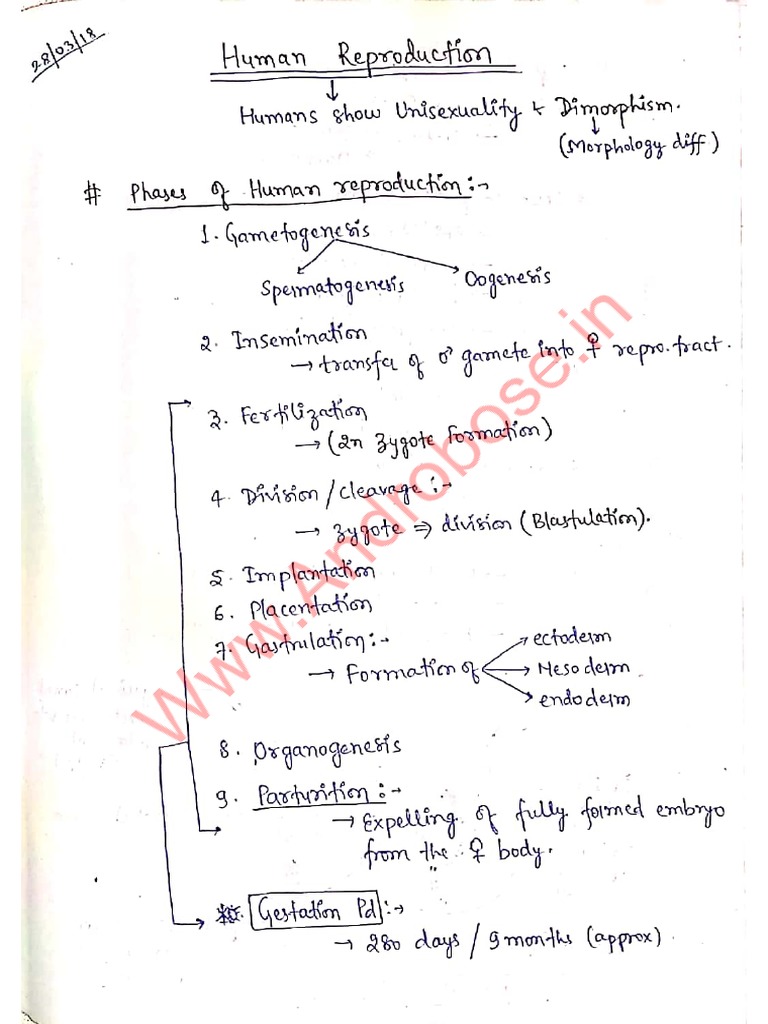 28/03/18
Human Reproduction
↓
Humans show Unisexuality & Dimorphism.
↓
(Morphology diff)
# Phases of Human reproduction:-
1. Gametogenesis
Spermatogenesis Oogenesis
2. Insemination
→ transfer of ♂ gamete into ♀ repro. tract.
3. Fertilization
→ (2n zygote formation)
4. Division/cleavage:-
→ zygote ⇒ division (Blastulation).
5. Implantation
6. Placentation
7. Gastrulation:-
→ Formation of → ectoderm
→ Mesoderm
→ endoderm
8. Organogenesis
9. Parturition:-
→ Expelling of fully formed embryo
from the ♀ body.
Gestation Pd:-
→ 280 days / 9 months (approx)
www.Androbose.in